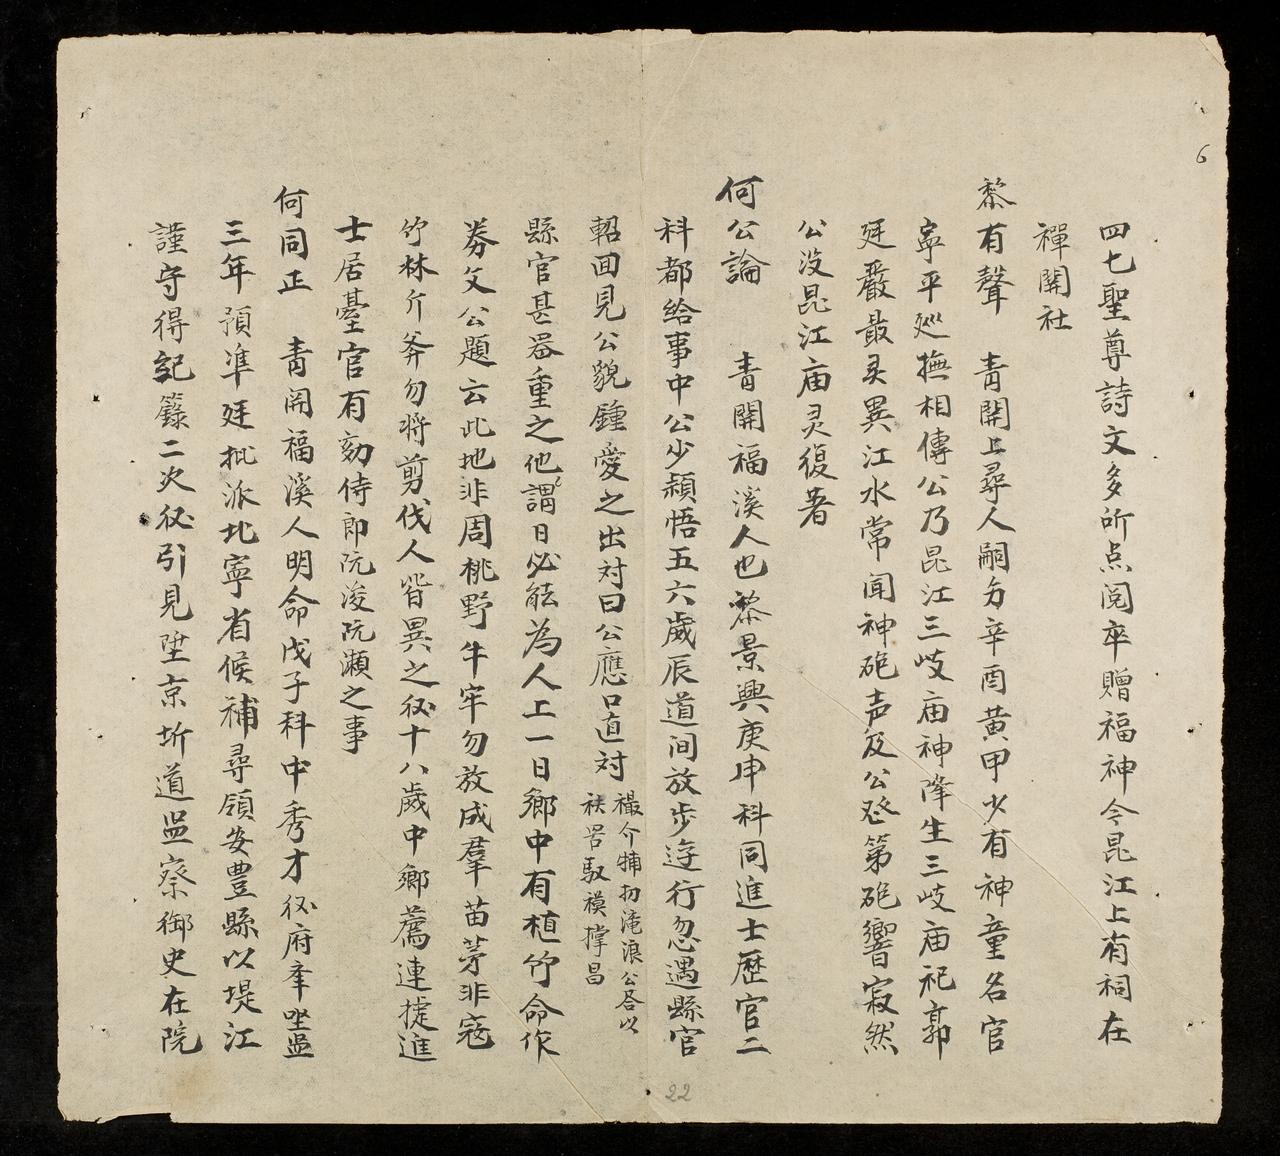 6
四七聖尊詩文多所点閲卒贈福神今昆江上有祠在
禪関社
黎有聲 青関上尋人嗣夯辛酉黄甲少有神童名官
寧平巡撫相傳公乃昆江三岐庙神降生三岐庙祀郭
廷嚴最灵異江水常聞神砲声及公登第砲響寂然
公没昆江庙灵復著
何公論 青関福溪人也黎景興庚申科同進士歷官二
科都給事中公少頴悟五六歲辰道间放步逰行忽遇縣官
軺囬見公貌鍾愛之出対曰公應口直対
撮介犕扐淹浪公答以
袂呂馭模撑昌
縣官甚器重之他謂日必能為人上一日鄉中有植竹命作
券文公題云此地非周桃野牛牢勿放成羣苗茅非寇
竹林斤斧勿将剪伐人皆異之後十八歲中鄉薦連捷進
士居臺官有劾侍郎阮浚阮瀬之事
何同正 青関福溪人明命戊子科中秀才後府奉坐監
三年預凖廷批派北寧省候補尋領安豊縣以堤江
謹守得紀籙二次後引見陞京圻道监察御史在院
22